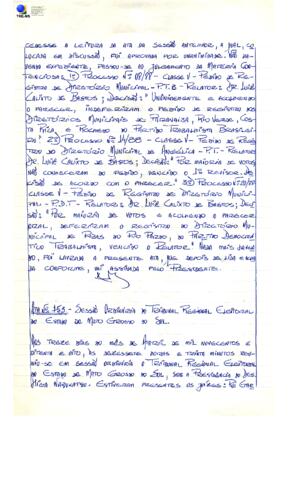 TRE-MS
CEDESSE A LEITURA DA ATA DA SESSÃO ANTERIOR, A QUAL, CO
LOCADA EM DISCUSSÃO, FOI APROVADA POR UNANIMIDADE.
EXPEDIENTE, PASSOU-SE AO JULGAMENTO DA MATÉRIA CON
TENCIOSA: 1º) PROCESSO Nº - CLASSE V - PEDIDO DE RE-
GISTRO DE DIRETÓRIO MUNICIPAL - P.T.B - RELATOR: DR. LUIZ
CALIXTO DE BASTOS; DECISÃO: "UNANIMEMENTE E ACOLHENDO
O PARECER, INDEFERIRAM O PEDIDO DE REGISTRO DOS
DIRETÓRIOS MUNICIPAIS DE PARANAÍBA, RIO VERDE, COS
TA RICA E DO PARTIDO TRABALHISTA BRASILEI-
RO." 2º) PROCESSO Nº 14/88 - CLASSE V - PEDIDO DE REGIS
TRO DO DIRETÓRIO MUNICIPAL DE ANGÉLICA - P.T. - RELATOR:
DR. LUIZ CALIXTO DE BASTOS; DECISÃO: "POR MAIORIA DE VOTOS
NÃO CONHECERAM DO PEDIDO, VENCIDO O 1º REVISOR. DE
CISÃO DE ACORDO COM O PARECER." 3º) PROCESSO Nº
CLASSE V - PEDIDO DE REGISTRO DE DIRETÓRIO MUNICI-
PAL - P.D.T - RELATOR: DR. LUIZ CALIXTO DE BASTOS; DECI-
SÃO: "POR MAIORIA DE VOTOS E ACOLHENDO O PARECER
ORAL, DEFERIRAM O REGISTRO DO DIRETÓRIO MU-
NICIPAL DE RIBAS DO RIO PARDO, DO PARTIDO DEMOCRÁ-
TICO TRABALHISTA, VENCIDO O RELATOR." NADA MAIS HAVEN
DO, FOI LAVRADA A PRESENTE ATA, QUE, DEPOIS DE LIDA E ACHA
DA CONFORME, VAI ASSINADA PELO PRESIDENTE.
ATA Nº - SESSÃO ORDINÁRIA DO TRIBUNAL REGIONAL ELEITORAL
DO ESTADO DE MATO GROSSO DO SUL.
AOS TREZE DIAS DO MÊS DE ABRIL DE MIL NOVECENTOS E
OITENTA E OITO, ÀS DEZESSETE HORAS E TRINTA MINUTOS REU-
NIU-SE EM SESSÃO ORDINÁRIA O TRIBUNAL REGIONAL ELEITORAL
DO ESTADO DE MATO GROSSO DO SUL, SOB A PRESIDÊNCIA DO DES.
ESTIVERAM PRESENTES OS JUÍZES: